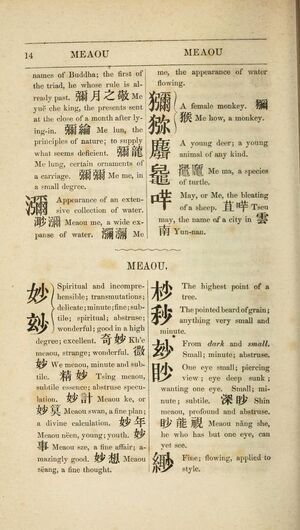 14 MEAOU MEAOU
names of Buddha; the first of
the triad, he whose rule is al-
ready past. 彌月之敬 Me
yuĕ che king, the presents sent
at the close of a month after ly-
ing-in. 彌綸 Me lun, the
principles of nature; to supply
what seems deficient. 彌龍
Me lung, certain ornaments of
a carriage. 彌彌 Me me, in
a small degree.
瀰 Appearance of an exten-
sive collection of water.
渺瀰 Meaou me, a wide ex-
panse of water. 瀰瀰 Me
me, the appearance of water
flowing.
獼
猕 A female monkey. 獼
猴 Me how, a monkey.
A young deer; a young
animal of any kind.
Me ma, a species
of turtle.
哶 May, or Me, the bleating
of a sheep. 苴哶 Tseu
may, the name of a city in 雲
南 Yun-nan.
MEAOU.
妙
玅 Spiritual and incompre-
hensible; transmutations;
delicate; minute; fine; sub-
tile; spiritual; abstruse;
wonderful; good in a high
degree; excellent. 奇妙 Kh'e
meaou, strange; wonderful. 微
妙 We meaou, minute and sub-
tile. 精妙 Tsing meaou,
subtile essence; abstruse specu-
lation. 妙計 Meaou ke, or
妙算 Meaou swan, a fine plan;
a divine calculation. 妙年
Meaou nëen, young; youth. 妙
事 Meaou sze, a fine affair; a-
mazingly good. 妙想 Meaou
sëang, a fine thought.
杪 The highest point of a
tree.
秒 The pointed beard of grain;
anything very small and
minute.
From dark and small.
Small; minute; abstruse.
眇 One eye small; piercing
view; eye deep sunk;
wanting one eye. Small; mi-
nute; subtile. 深眇 Shin
meaou, profound and abstruse.
眇能視 Meaou năng she,
he who has but one eye, can
yet see.
Fine; flowing, applied to
style.